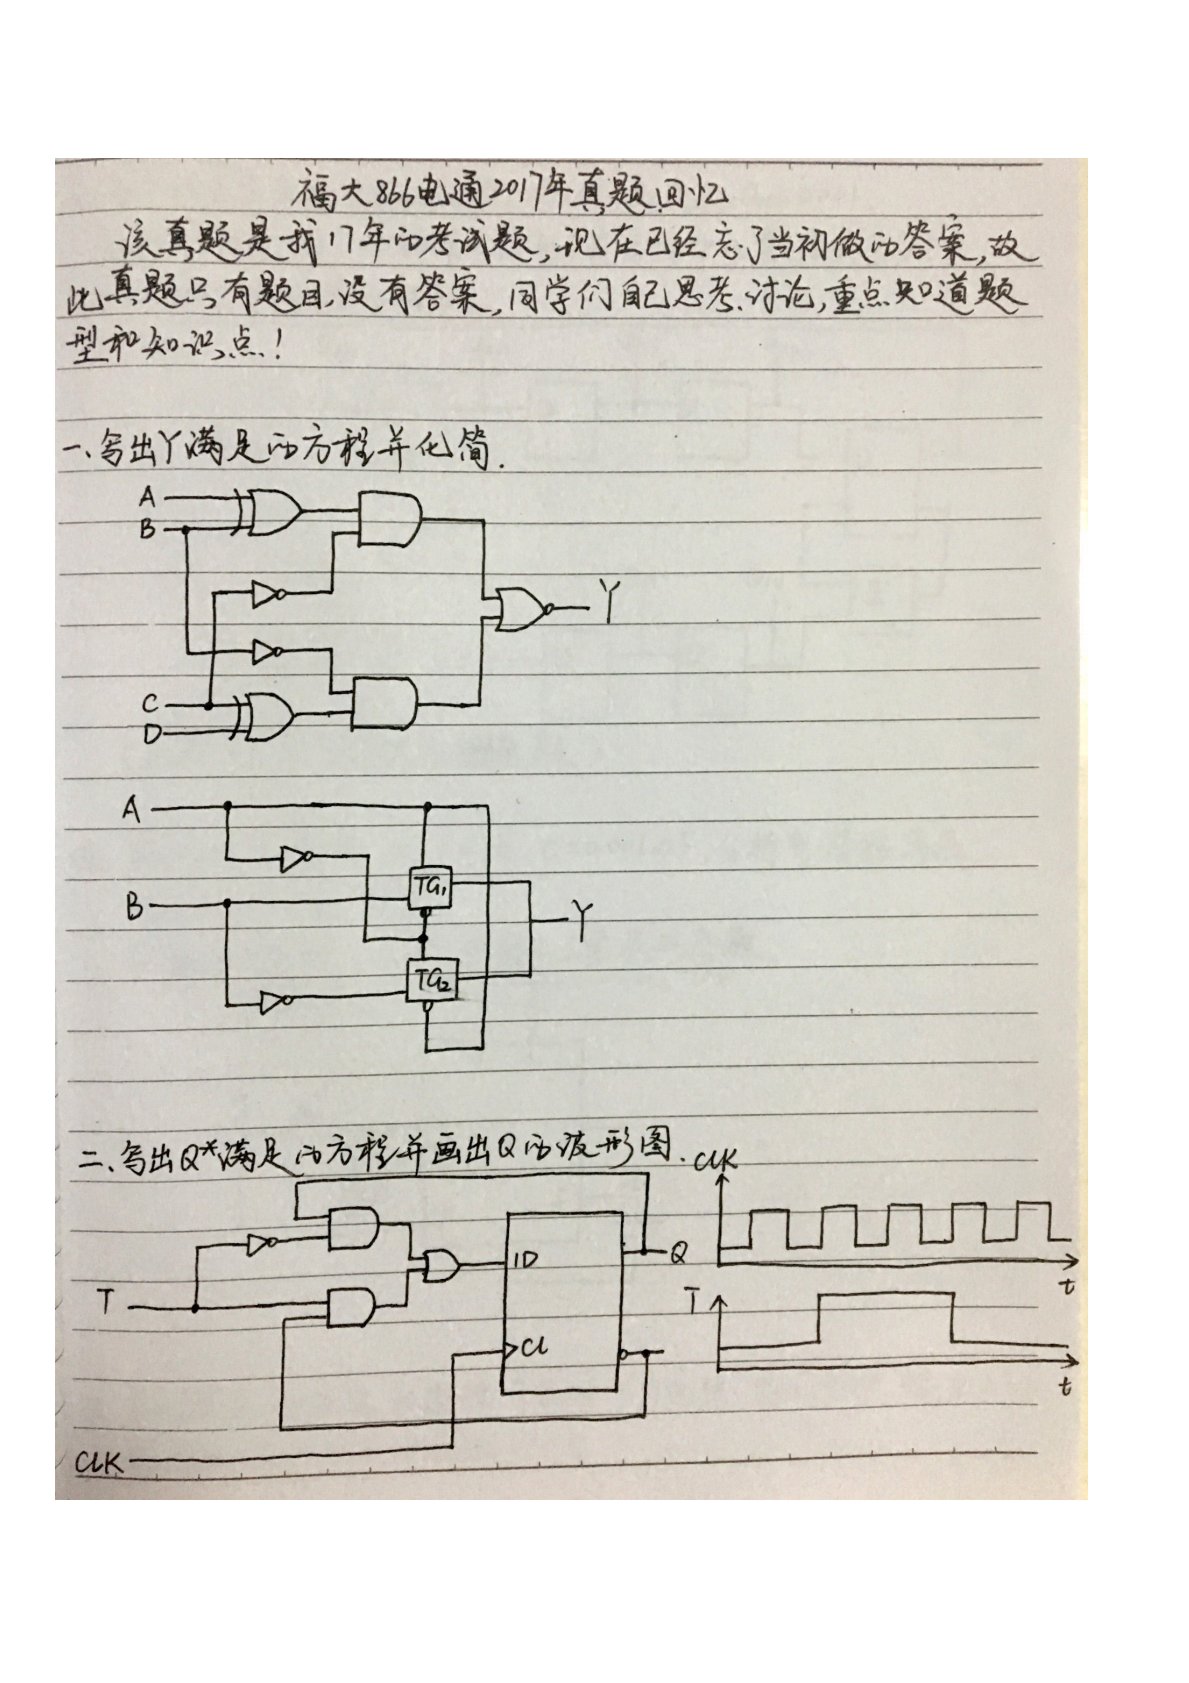 福大866电通2017年真题回忆
该真题是我17年的考试题,现在已经忘了当初做的答案,故
此真题只有题目,没有答案,同学们自己思考、讨论,重点知道题
型和知识点!
一、写出Y满足的方程并化简.
A
B
Y
C
D
A
TG1
B
Y
TG2
二、写出Q*满足的方程并画出Q的波形图.
CLK
1D
Q
t
T
T
C1
t
CLK